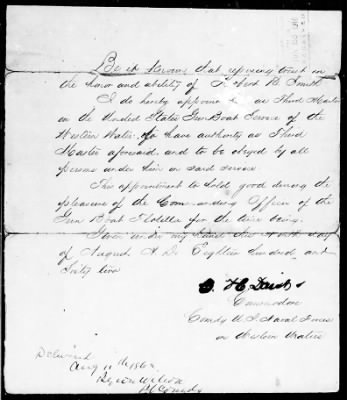 Be it Known that reposing trust in
the honor and ability of Robert B. Smith
I do hereby appoint him as Third Master
in the United States Gun Boat Service of the
Western Waters to have authority as Third
Master aforesaid and to be obeyed by all
persons under him in said service
This appointment to hold good during the
pleasure of the Commanding Officer of the
Gun Boat Flotilla for the time being.
Given under my hand this day
of August A. D. Eighteen hundred and
Sixty two
C. H. Davis
Commodore
Comdg U. S. Naval Forces
on Western Waters
Delivered
Aug 11th 1862
Byron Wilson